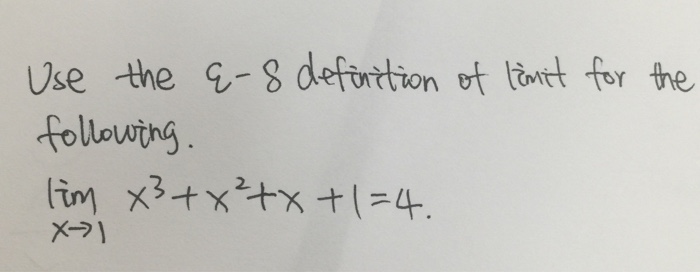 Use the ε-δ definition of limit for the
following.
lim x³+x²+x+1=4.
x→1